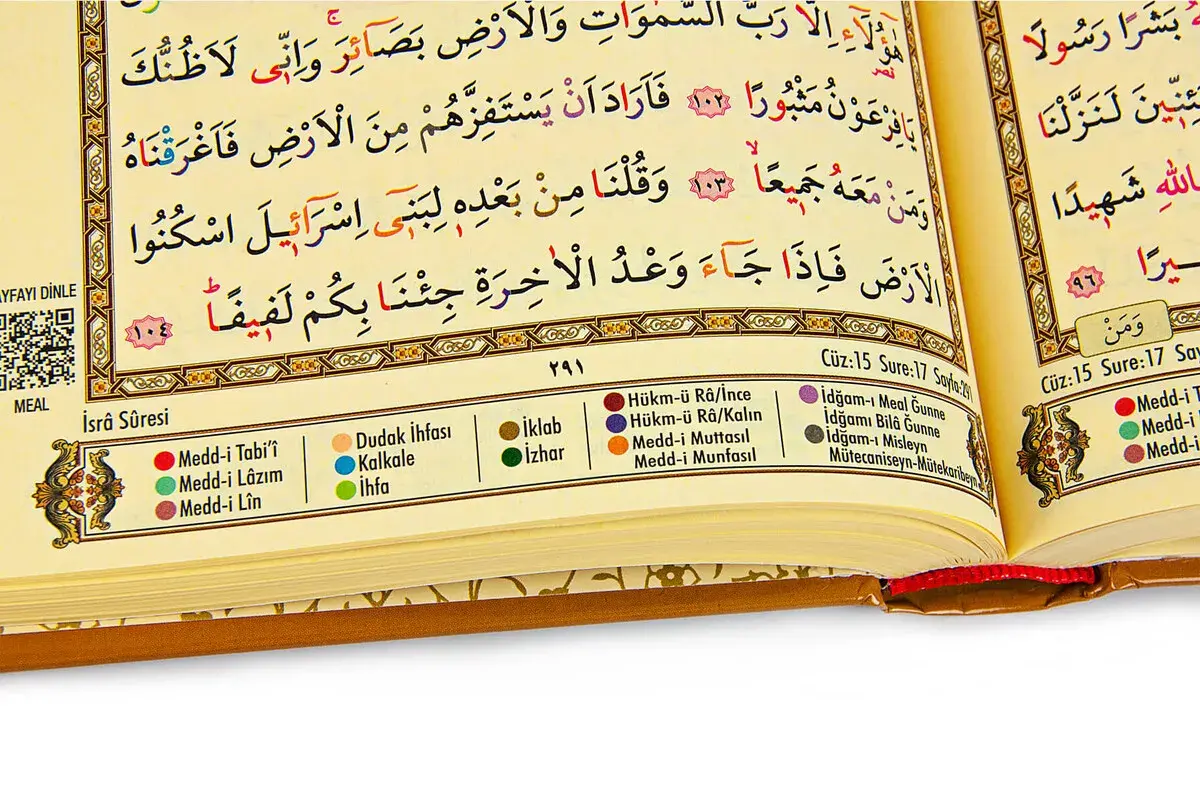 هٰٓؤُ۬لَٓاءِ اِلَّا رَبُّ السَّمٰوَاتِ وَالْاَرْضِ بَصَٓائِرَۚ وَاِنّ۪ي لَاَظُنُّكَ
يَا فِرْعَوْنُ مَثْبُورًا ١٠٢ فَاَرَادَ اَنْ يَسْتَفِزَّهُمْ مِنَ الْاَرْضِ فَاَغْرَقْنَاهُ
وَمَنْ مَعَهُ جَم۪يعًاۙ ١٠٣ وَقُلْنَا مِنْ بَعْدِه۪ لِبَن۪ٓي اِسْرَٓائ۪لَ اسْكُنُوا
الْاَرْضَ فَاِذَا جَٓاءَ وَعْدُ الْاٰخِرَةِ جِئْنَا بِكُمْ لَف۪يفًاۜ ١٠٤
٢٩١
AYFAYI DİNLE
MEAL
İsrâ Sûresi
Cüz:15 Sure:17 Sayfa:291
Medd-i Tabi'î
Medd-i Lâzım
Medd-i Lîn
Dudak İhfası
Kalkale
İhfa
İklab
İzhar
Hükm-ü Râ/İnce
Hükm-ü Râ/Kalın
Medd-i Muttasıl
Medd-i Munfasıl
İdğam-ı Meal Ğunne
İdğamı Bilâ Ğunne
İdğam-ı Misleyn
Mütecaniseyn-Mütekaribeyn
بَشَرًا رَسُولًا
لَنَزَّلْنَا
بِاللّٰهِ شَه۪يدًا
٩٦
وَمَنْ
Cüz:15 Sure:17
Medd-i
Medd-i
Medd-i